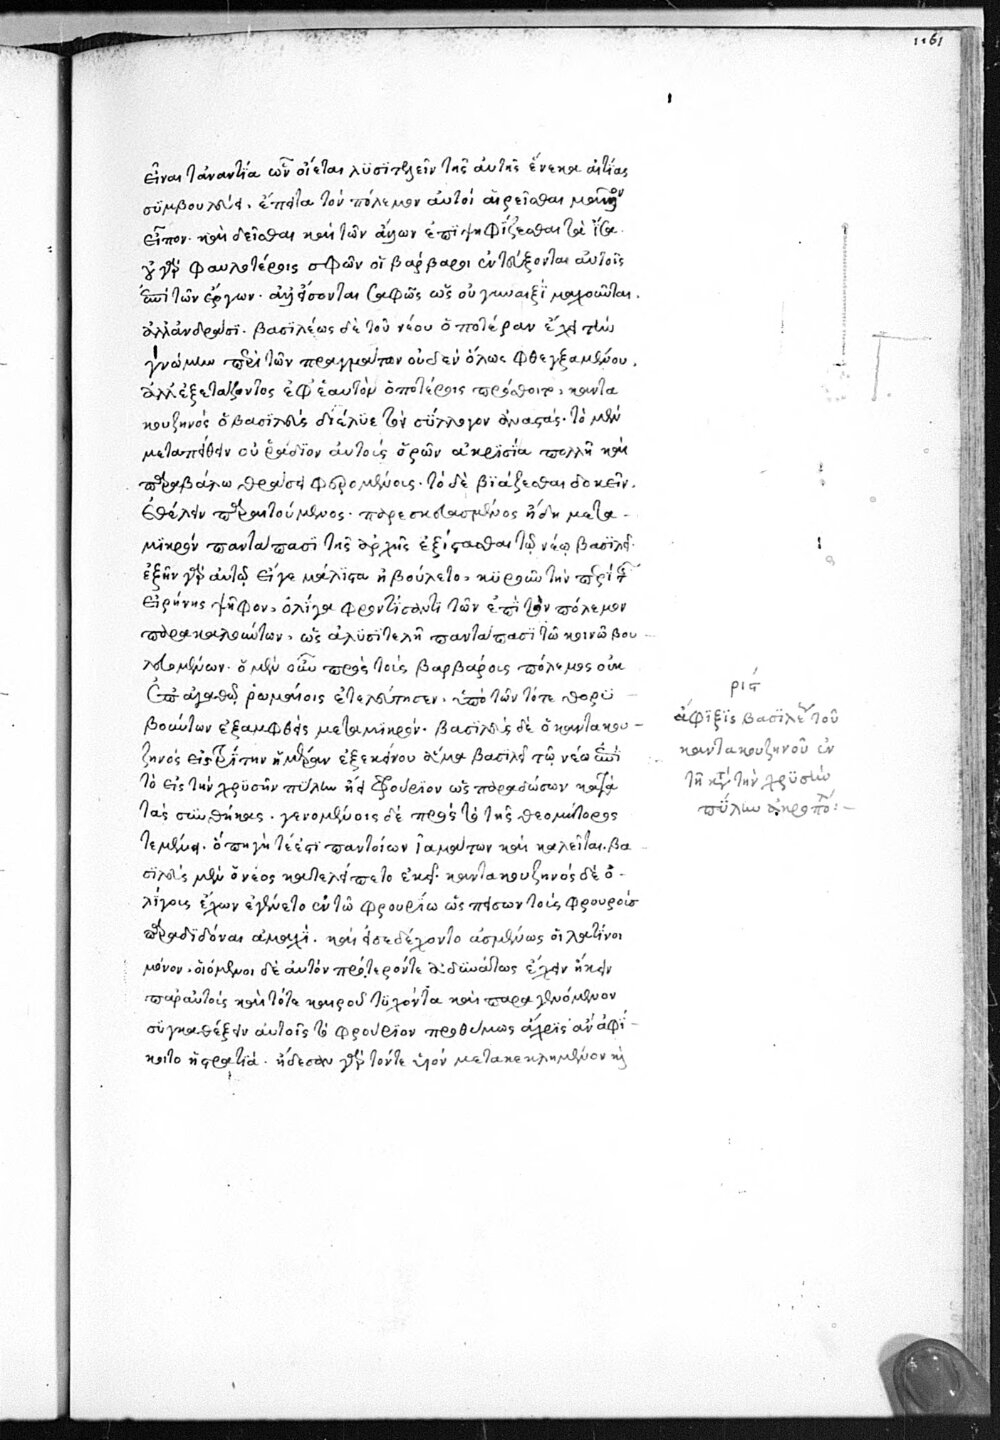 1161
εἶναι τἀναντία ὧν οἴεται λϋσιτελεῖν τῆς ἀυτῆς ἕνεκα ἀιτίας
σϋμβουλεύει. ἔπειτα τὸν πόλεμον ἀυτοὶ ἀιρεῖσθαι μᾶλλον
εἶπον. καὶ δεῖσθαι καὶ τῶν ἄλλων ἐπιψηφίζεσθαι τὰ ἴσα.
οὐ γὰρ φαυλοτέροις σφῶν οἱ βάρβαροι ἐντεύξονται αὐτοῖς
ἐπὶ τῶν ἔργων. ἀλλ' εἴσονται σαφῶς ὡς οὐ γυναιξὶ μαχοῦνται.
ἀλλ' ἀνδράσϊ. βασιλέως δὲ τοῦ νέου ὁποτέραν ἔχει τὴν
γνώμην περὶ τῶν πραγμάτων οὐδὲν ὅλως φθεγξαμένου.
ἀλλ' ἐξετάζοντος ἐφ' ἑαυτὸν ὁποτέροις πρόσθοιτο, καντα
κουζηνὸς ὁ βασϊλεὺς διέλϋε τὸν σύλλογον ἀναστάς. τὸ μὲν
μεταπείθειν οὐ ῥάδϊον ἀυτοὺς ὁρῶν ἀκρϊσίᾳ πολλῇ καὶ
παραβόλω θράσει φερομένους. τὸ δὲ βϊάζεσθαι δοκεῖν.
ἐθέλειν παραιτούμενος. παρεσκευασμένος ἤδη μετα-
μϊκρὸν πανταπασϊ τῆς ἀρχῆς ἐξίστασθαι τῷ νέῳ βασιλεῖ.
ἐξῆν γὰρ αὐτῷ εἴγε μάλιστα ἠβούλετο, κϋροῦν τὴν περὶ τῆς
εἰρήνης ψῆφον, ὀλίγα φροντίσαντι τῶν ἐπὶ τὸν πόλεμον
παρακαλούντων, ὡς ἀλϋσϊτελῆ πανταπασϊ τῶ κοινῶ βου-
λευομένων. ὁ μὲν οὖν πρὸς τοὺς βαρβάρους πόλεμος οὐκ
ἐπ' ἀγαθῷ ῥωμαίοις ἐτελεύτησεν, ὑπὸ τῶν τότε θορϋ-
βούντων ἐξαμφθεὶς μεταμικρόν. βασϊλεὺς δὲ ὁ καντακου-
ζηνὸς εἰς τρίτην ἡμέραν ἐξεκείνου ἅμα βασιλεῖ τῷ νέῳ ἐπὶ
τὸ εἰς τὴν χρϋσῆν πύλην ἤει φρούριον ὡς παραδώσων κατὰ
τὰς σϋνθήκας. γενομένοις δὲ πρὸς τὸ τῆς θεομήτορος
τεμένει. ὃ πηγὴ τέεστϊ παντοίων ἰαμάτων καὶ καλεῖται. βα-
σϊλεὺς μὲν ὁ νέος κατελείπετο ἐκεῖ. καντακουζηνὸς δὲ ὀ-
λίγους ἔχων ἐγένετο ἐν τῶ φρουρίω ὡς πείσων τοὺς φρουροὺς
παραδϊδόναι ἀμαχί. καὶ εἰσεδέχοντο ἀσμένως οἱ λατῖνοι
μόνον. οἰόμενοι δὲ ἀυτὸν πρότερόντε ἀεὶ δϋνάτως ἔχειν ἥκειν
παραυτοὺς καὶ τότε καιροῦ τϋχόντα καὶ παραγενόμενον
σϋγκαθέξειν αυτοῖς τὸ φρούριον προθύμως ἄχρϊς ἂν ἀφί-
κοιτο ἡ στρατϊά. ᾔδεσαν γὰρ τόντε ὑϊὸν μετακεκλημένον καὶ
ριϛ
ἄφϊξϊς βασϊλέως τοῦ
καντακουζηνοῦ ἐν
τῆ κατὰ τὴν χρϋσῆν
πϋλην ἀκροπόλει:-